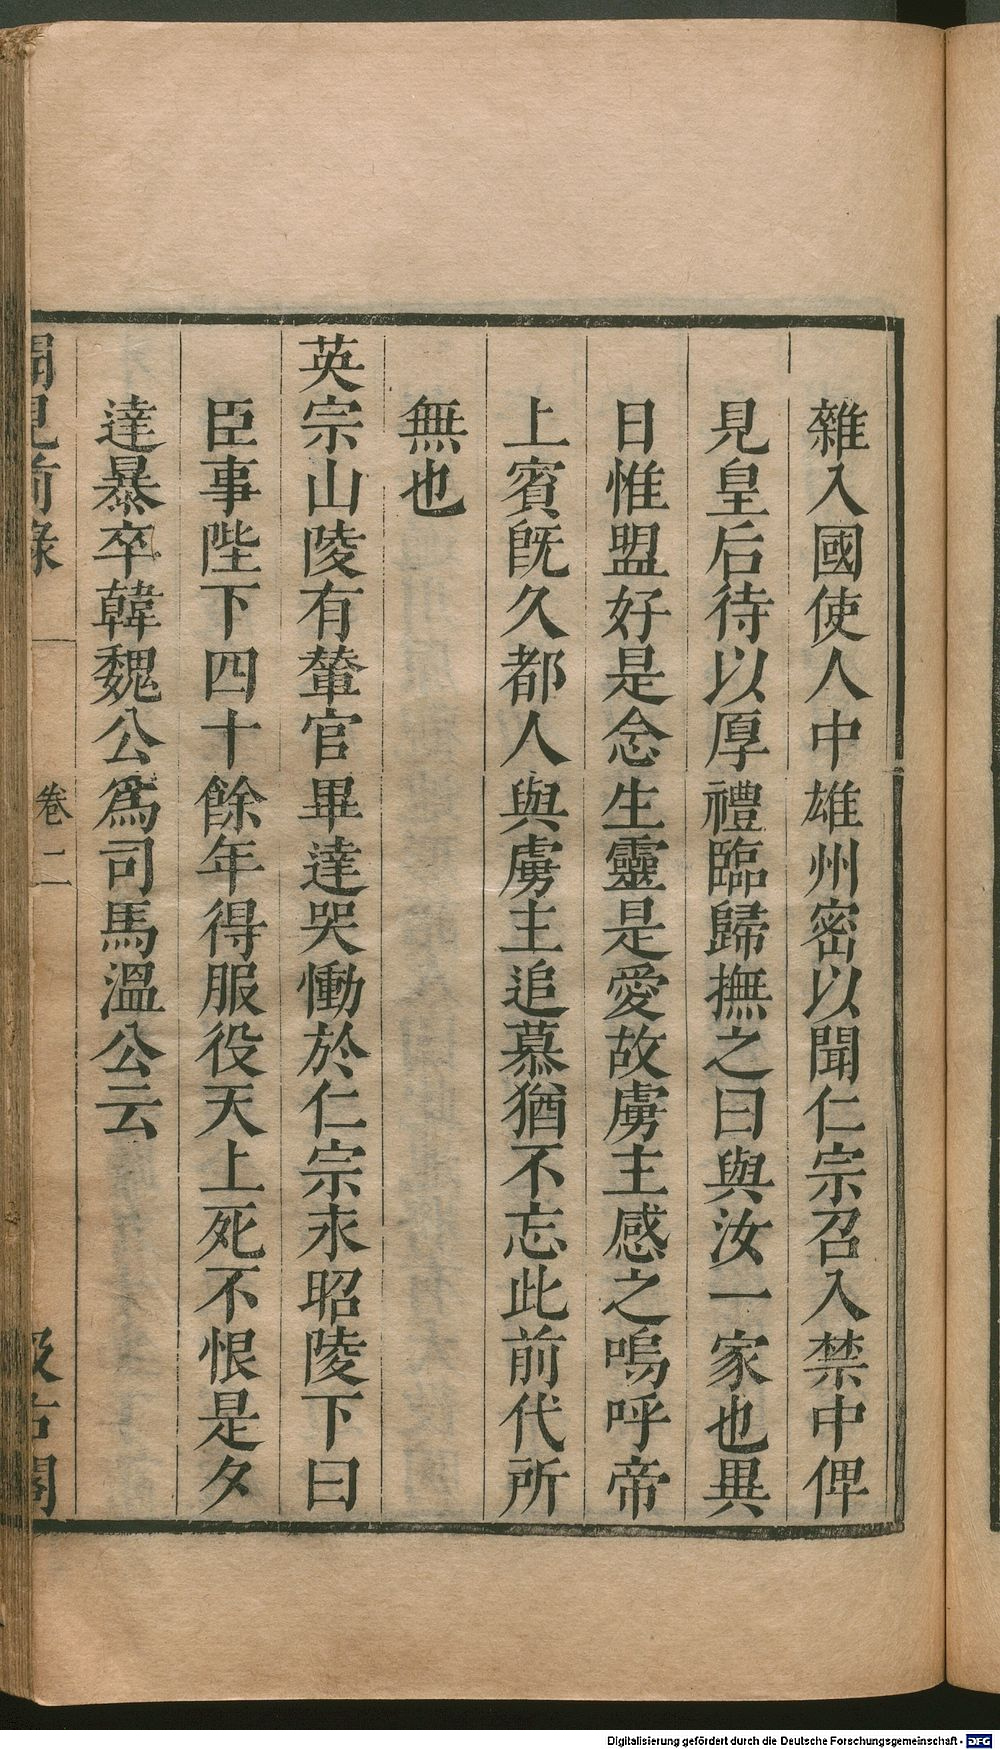 雜入國使人中雄州密以聞仁宗召入禁中俾
見皇后待以厚禮臨歸撫之曰與汝一家也異
日惟盟好是念生靈是愛故虜主感之嗚呼帝
上賓旣久都人與虜主追慕猶不忘此前代所
無也
英宗山陵有輦官畢達哭慟於仁宗永昭陵下曰
臣事陛下四十餘年得服役天上死不恨是夕
達暴卒韓魏公爲司馬溫公云
聞見前錄 卷二 汲古閣
Digitalisierung gefördert durch die Deutsche Forschungsgemeinschaft - DFG